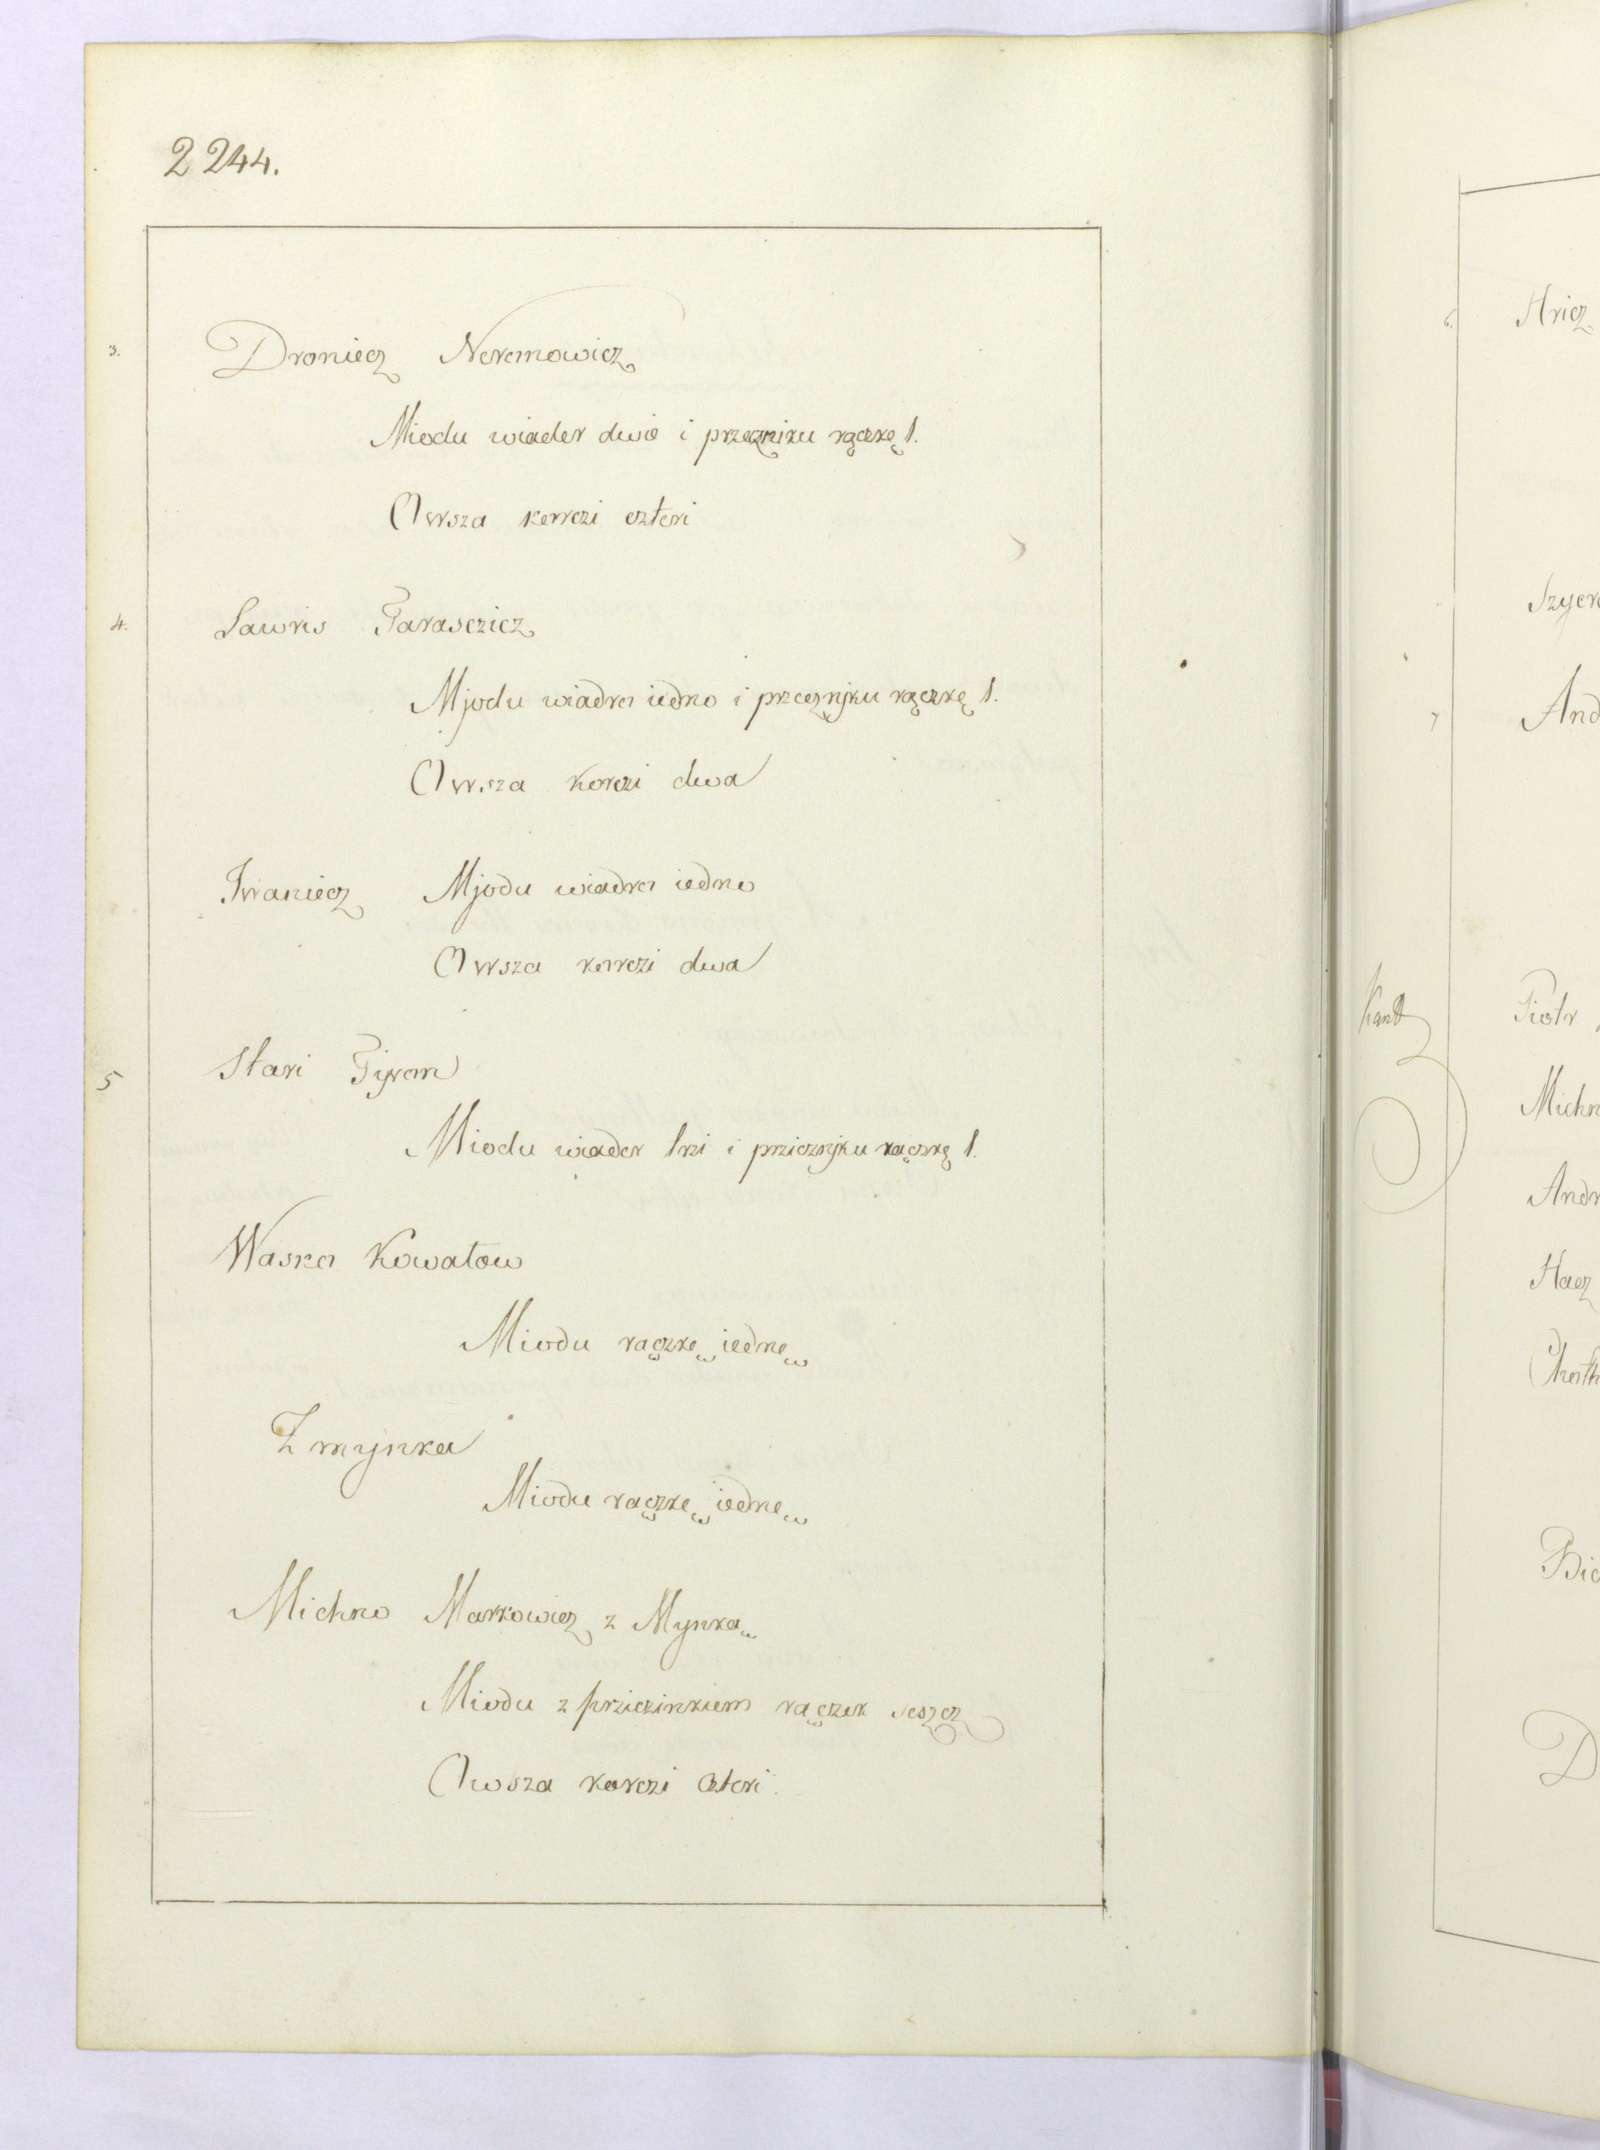 2244.
3. Droniecz Neremowicz
Miodu wiader dwie i przeczniku rączkę 1.
Owsza korczi czteri
4. Lawris Tarasczicz
Mjodu wiadro iedno i przecznjku rączkę 1.
Owsza korczi dwa
Iwaniecz Mjodu wiadro iedno
Owsza korczi dwa
5 Stari Tyrem
Miodu wiader trzi i przicznjku rączkę 1.
Waska Kowalow
Miodu rączkę iednę
Zmynka
Miodu rączkę iednę
Michno Markowicz z Mynka
Miodu z prziczinkiem rączek seszcz
Owsza korczi czteri.
6. Hricz
7 And
Piotr
Michn
Andr
Hacz